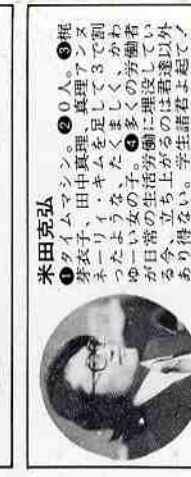 米田克弘
❶タイムマシン。❷0人。❸梶
芽衣子、田中真理、真理アンヌ
ネーリィ・キムを足して3で割
ったような、たくましく、かわ
ゆーい女の子。❹多くの労働者
が日常の生活労働に埋没してい
る今、立ち上がるのは君達以外
あり得ない。学生諸君よ起て！